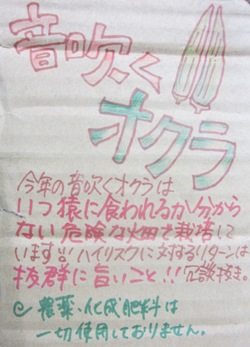 音吹く
オクラ
今年の音吹くオクラは
いつ猿に食われるか分から
ない危険な畑で栽培して
います。ハイリスクに対するリターンは
抜群に旨いこと!!冗談抜き。
農薬、化成肥料は
一切使用しておりません。